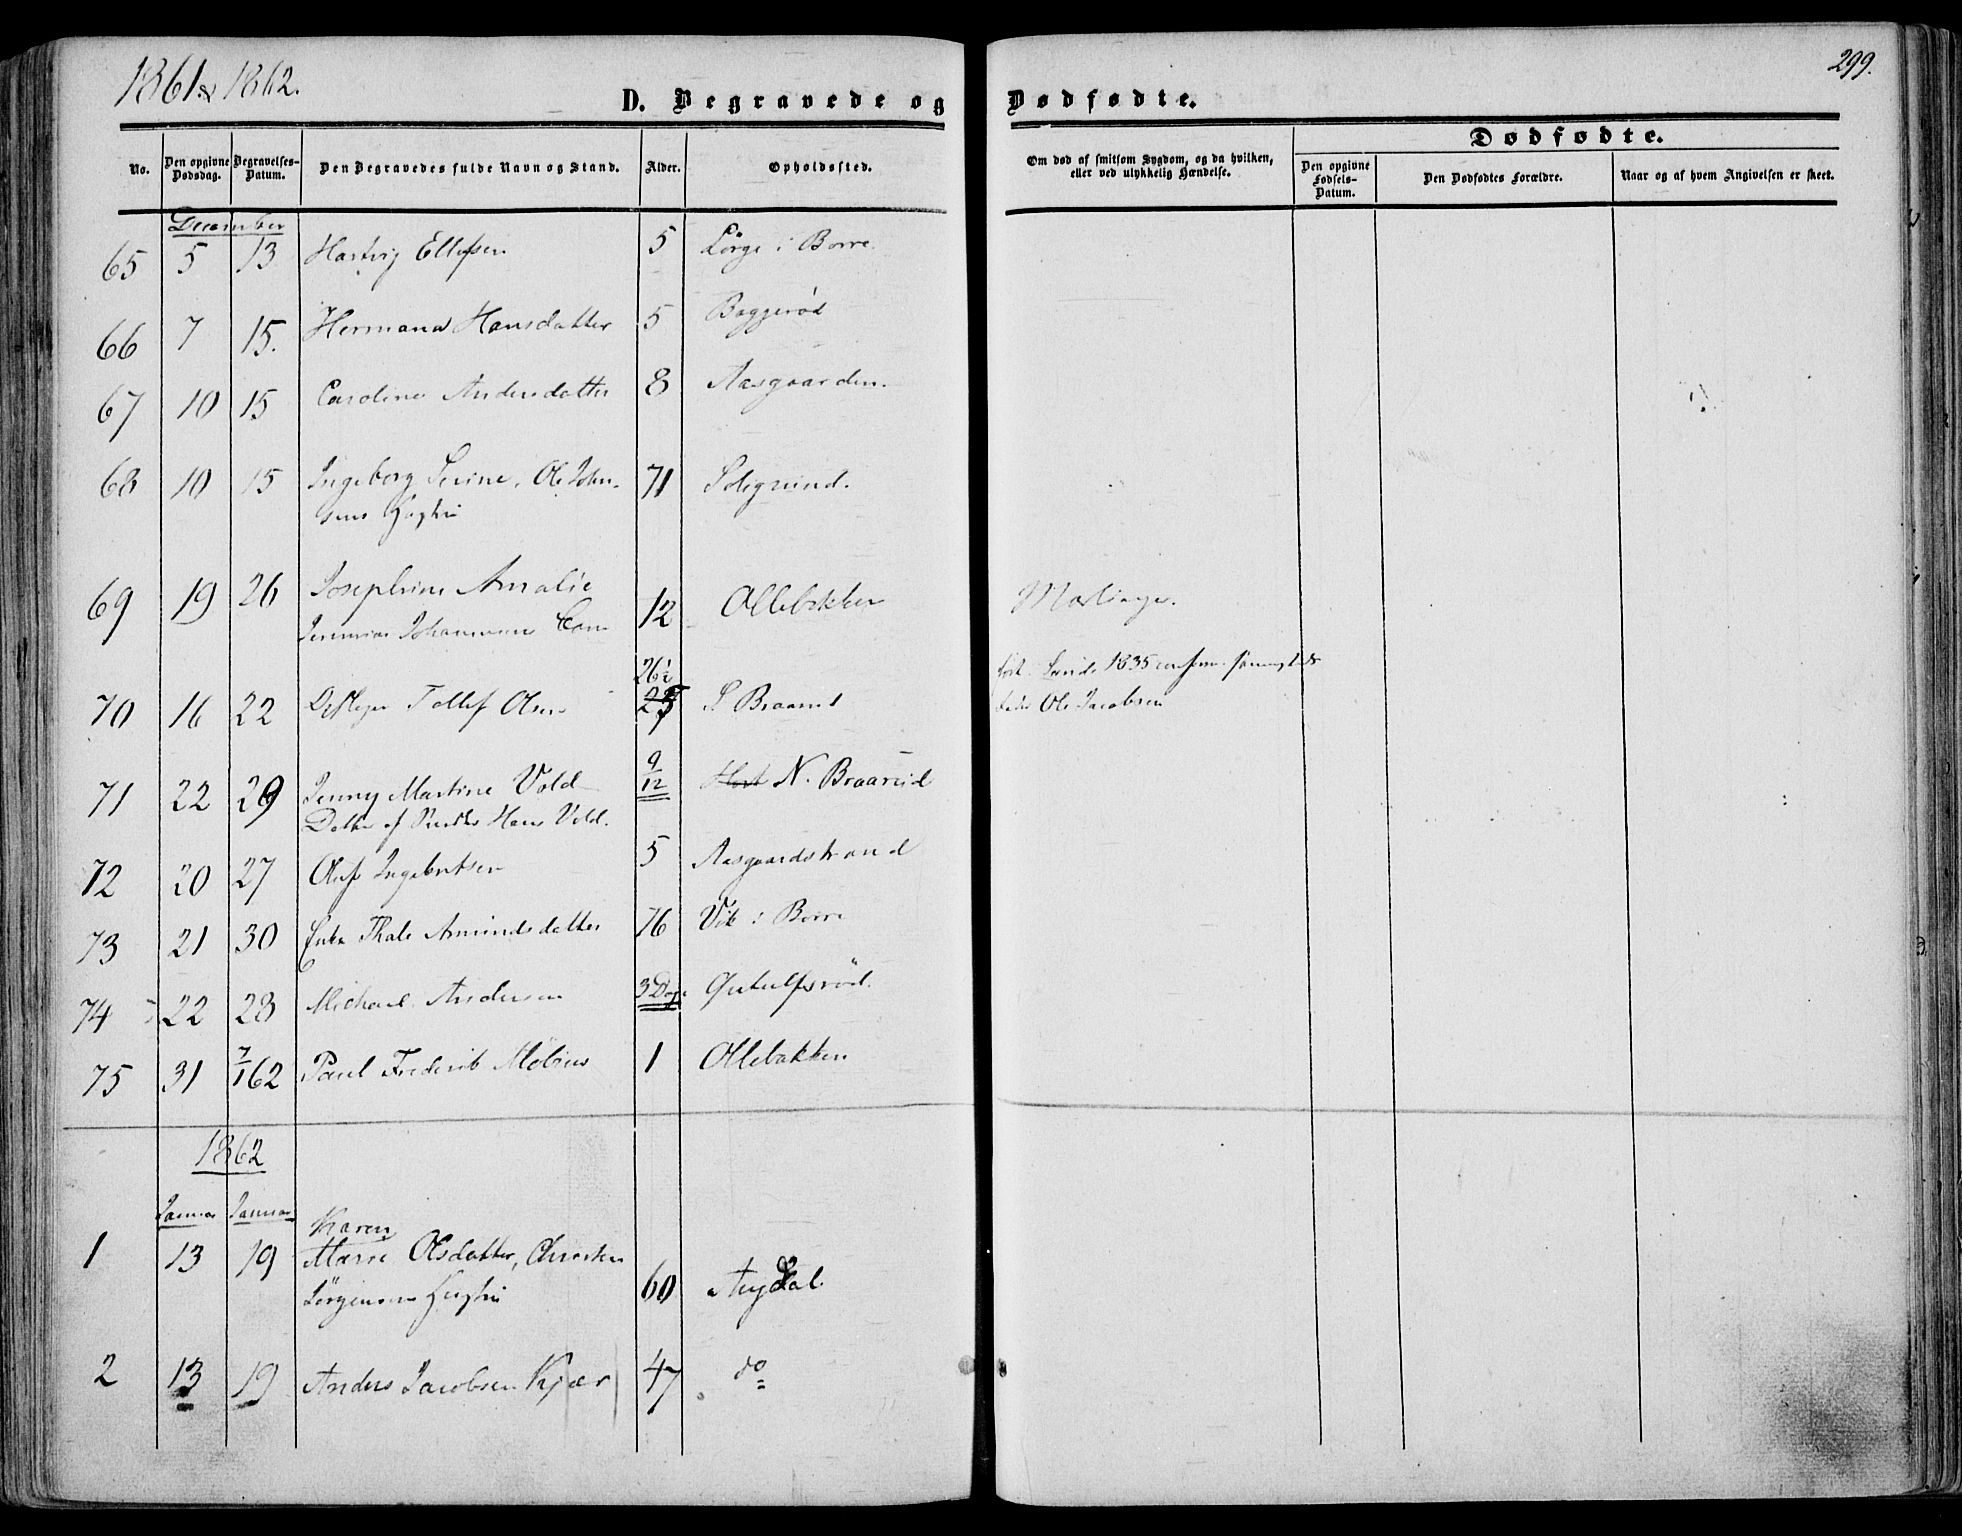 1861 & 1862.
299.
D. Begravede og Dødfødte.
No.
Den opgivne Dødsdag.
Begravelses-Datum.
Den Begravedes fulde Navn og Stand.
Alder.
Opholdssted.
Om død af smitsom Sygdom, og da hvilken, eller ved ulykkelig Hændelse.
Dødfødte.
Den opgivne Fødsels-Datum.
Den Dødfødtes Forældre.
Naar og af hvem Angivelsen er skeet.
December
65 5 13 Hartvig Ellefsen 5 Lørge i Borre.
66 7 15. Hermana Hansdatter 5 Baggerød
67 10 15 Caroline Andersdatter 8 Aasgaarden.
68 10 15 Ingeborg Serine, Ole John-
sens 71 Solegrund.
69 19 26 Josephine Amalie
Johannesens 12 Ollebakken Mæslinger.
26½
70 16 22 Tollef Olsen S Braarud 1835
Ole Jacobsen
71 22 29 Jenny Martine Vold 9/12 N. Braarud
Datter af Hans Vold.
72 20 27 Oluf Ingebrtsen 5 Aasgaardstrand
73 21 30 Enke Thale Amundsdatter 76 Vik i Borre
74 22 28 Michael Andersen 3 Dage
75 31 7/1 62 Paul Frederik Möbius 1 Ollebakken
1862
Januar Januar
Karen
1 13 19 Marie Olsdatter, Christen
Jørgensens 60 Augdal.
2 13 19 Anders Jacobsen Kjær 47 do